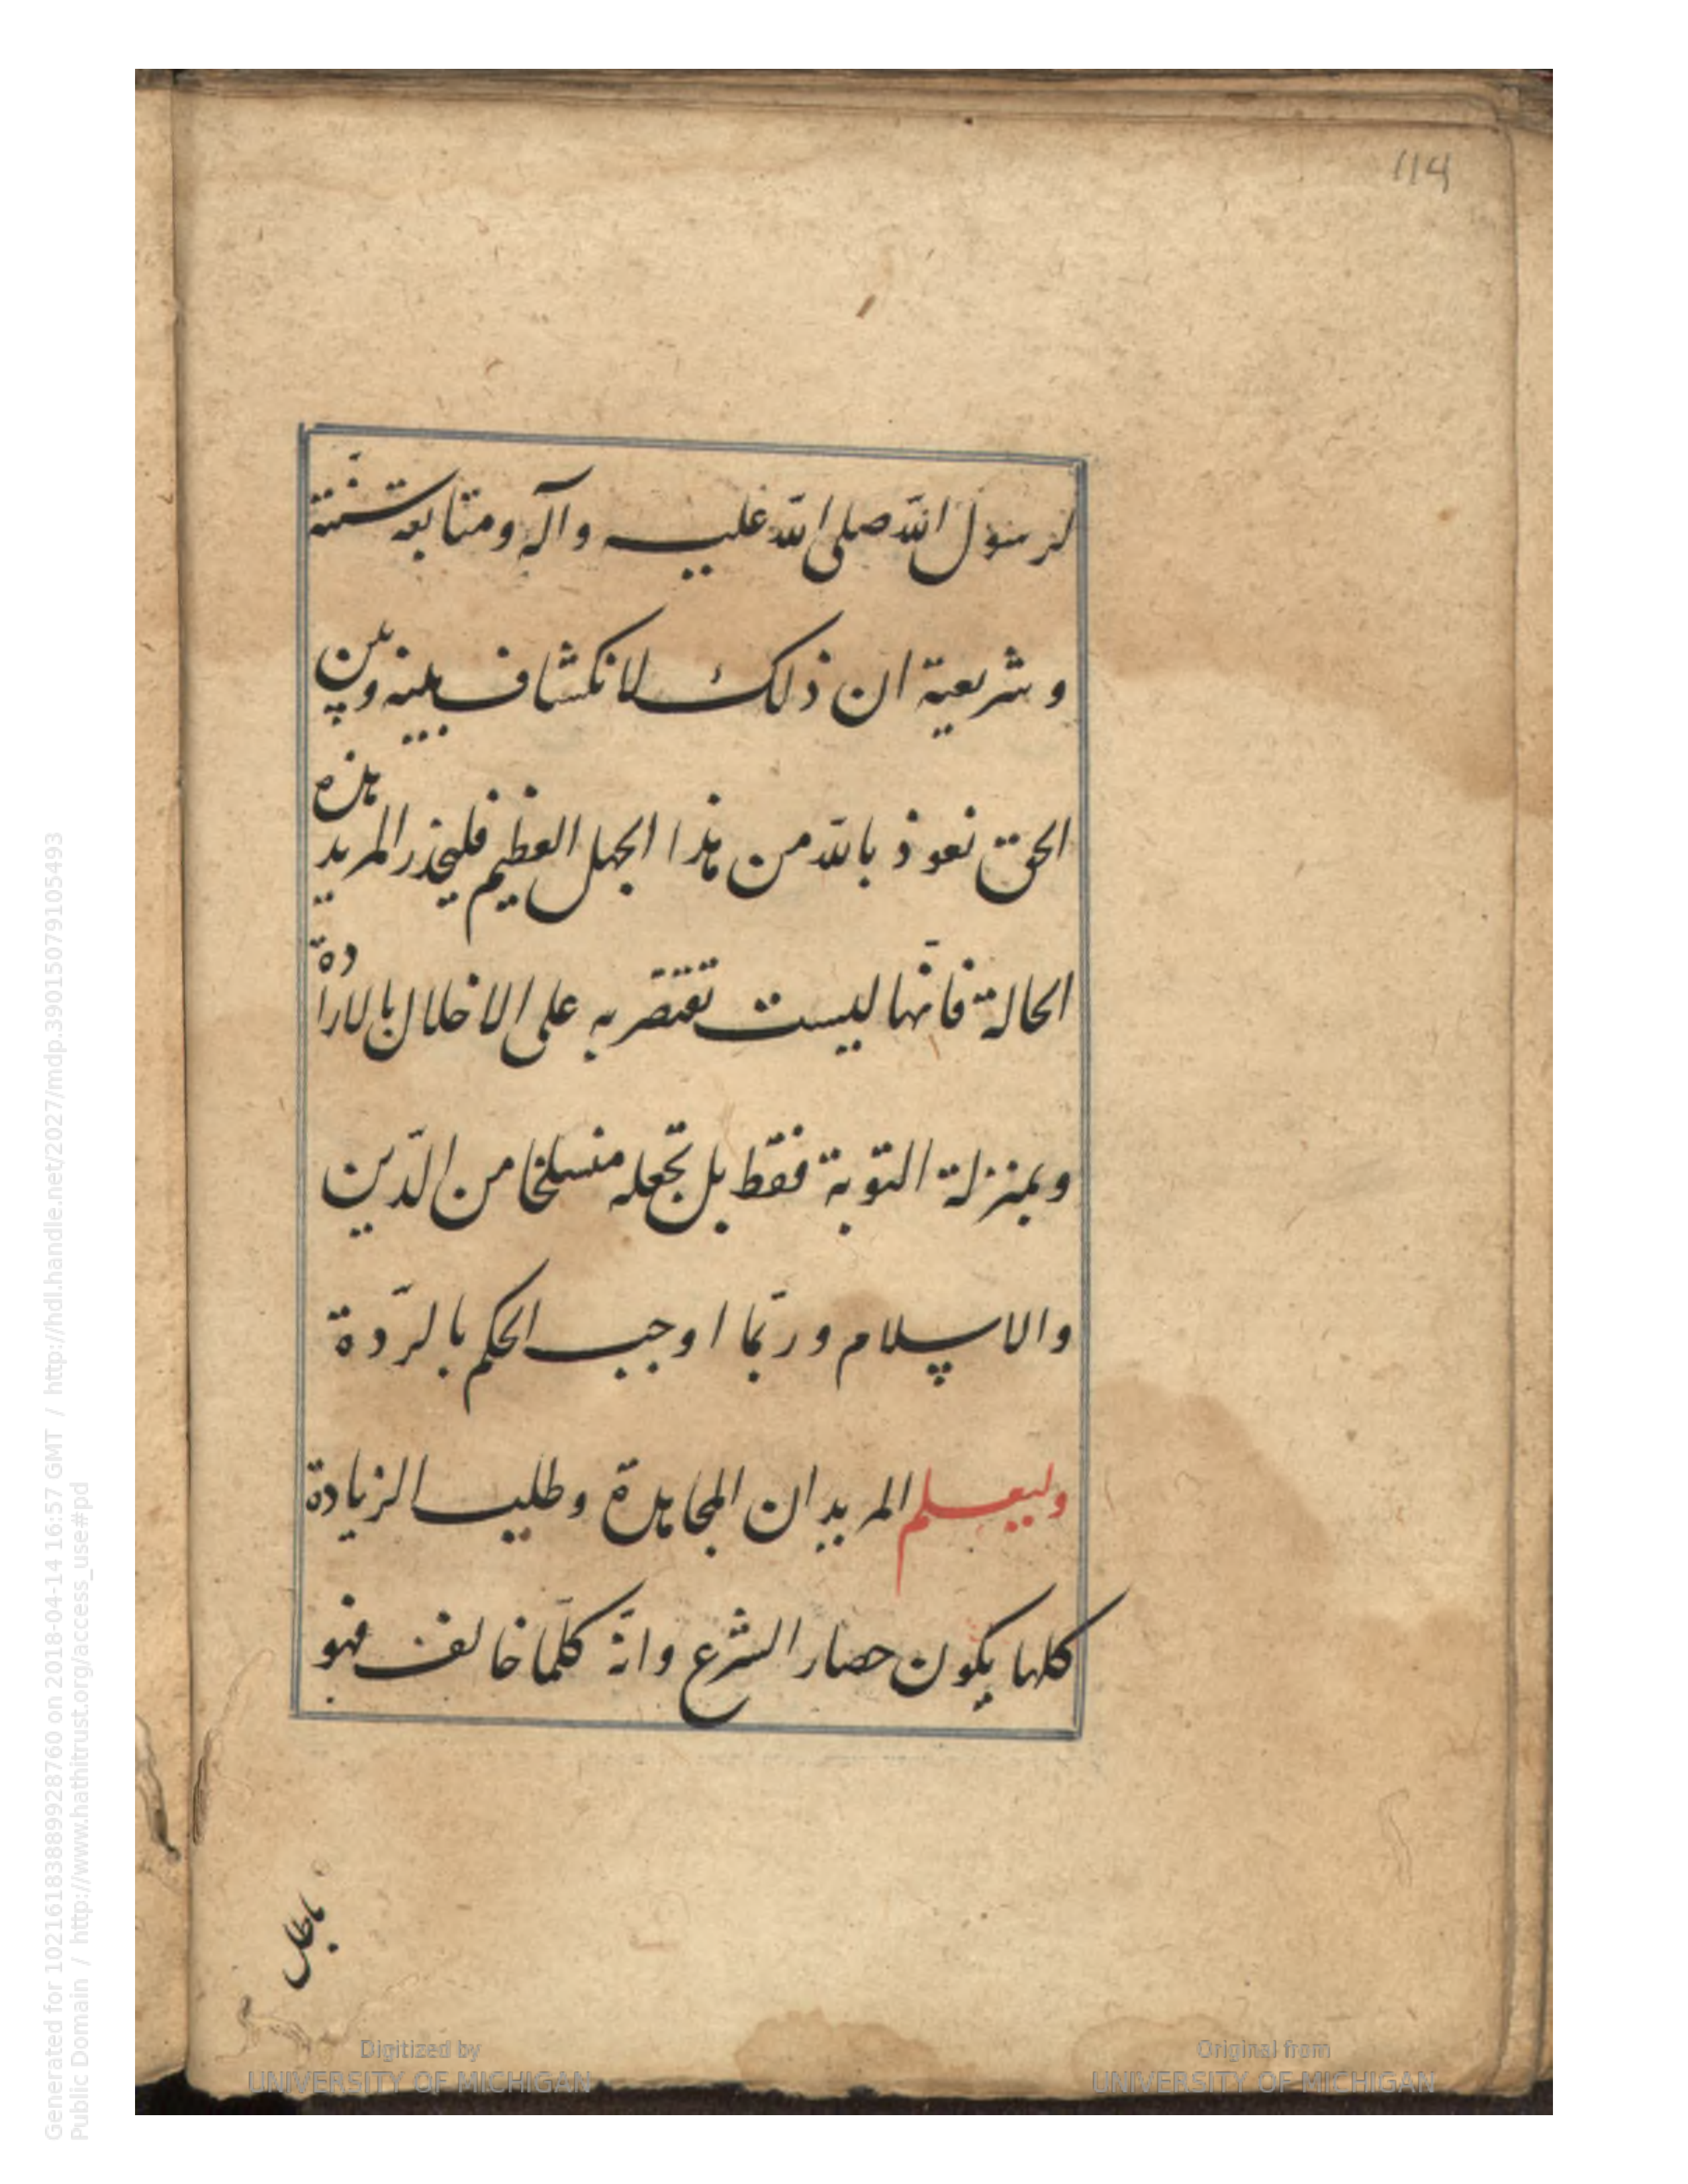 114
لرسول الله صلى الله عليه وآله ومتابعة سنّته
وشريعية ان ذلك لانكشاف بينه وبين
الحق نعوذ بالله من هذا الجهل العظيم فليحذر المريد هذه
الحالة فانّها ليست تقتصر به على الاخلال بالارادة
وبمنزلة التوبة فقط بل تجعله منسلخا من الدّين
والاسلام وربّما اوجب الحكم بالردّة
وليعلم المريد ان المجاهدة وطلب الزيادة
كلها يكون حصار الشرع وانّه كلّما خالف فهو
باطل
Generated for 1021618388992876 on 2018-04-14 16:57 GMT / http://hdl.handle.net/2027/mdp.39015079105493
Public Domain / http://www.hathitrust.org/access_use#pd
Digitized by
UNIVERSITY OF MICHIGAN
Original from
UNIVERSITY OF MICHIGAN